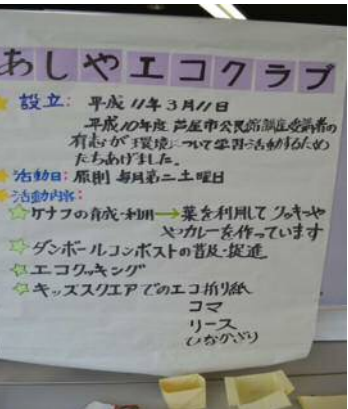 あしやエコクラブ
設立: 平成11年3月11日
平成10年度 芦屋市公民館講座受講者の
有志が環境について学習・活動するため
たちあげました。
活動日: 原則 毎月第二土曜日
活動内容:
ケナフの育成・利用→葉を利用して クッキーや
やカレーを作っています
ダンボールコンポストの普及・促進
エコクッキング
キッズスクエアでのエコ折り紙
コマ
リース
ひなかざり